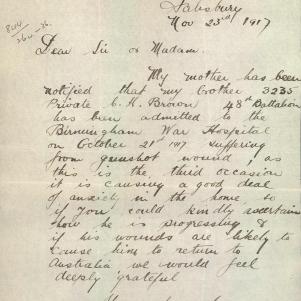 Salisbury
Nov 23rd 1917
844
Dear Sir or Madam.
My mother has been
notified that my brother 3235
Private C. H. Brown 48th Battalion
has been admitted to the
Birmingham War Hospital
on October 21st 1917 suffering
from gunshot wound, as
this is the third occasion
it is causing a good deal
of anxiety in the home, so
if you could kindly ascertain
how he is progressing &
if his wounds are likely to
cause him to return to
Australia we would feel
deeply grateful